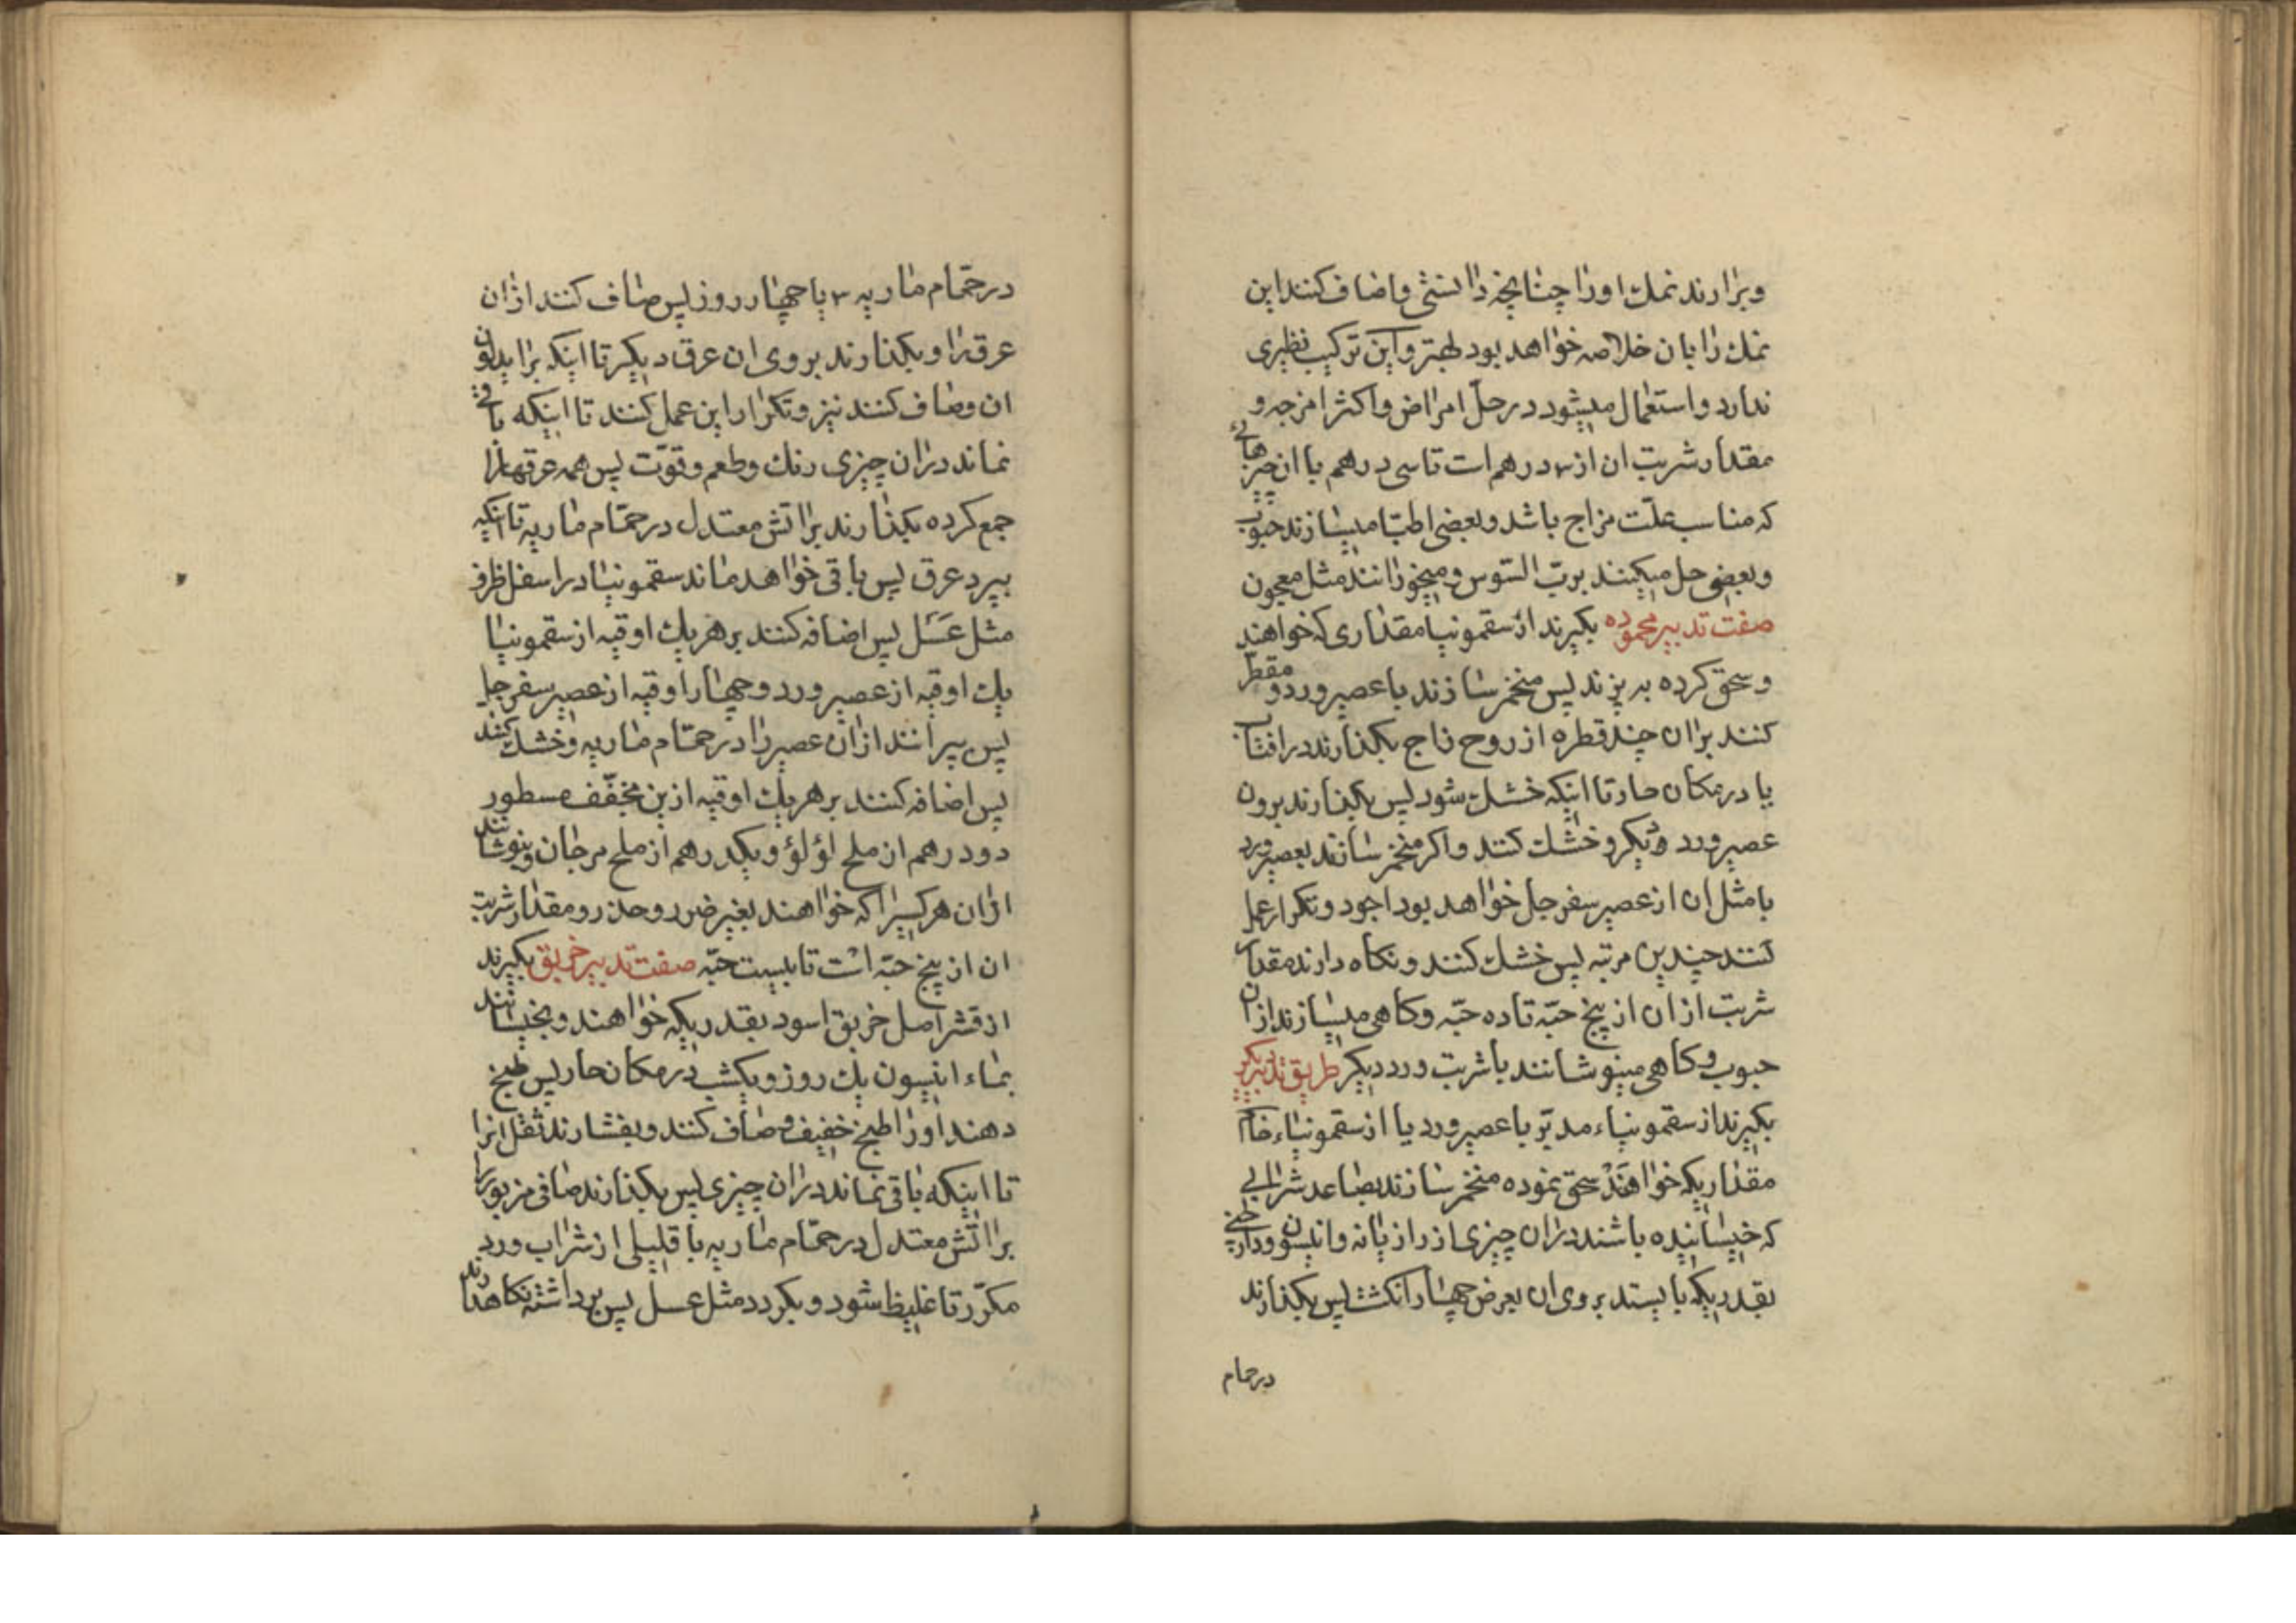 وبرارند نمك اورا چنانچه دانستی واضاف کنند این
نمك را بان خلاصه خواهد بود بهتر واین ترکیب نظیری
ندارد واستعمال میشود در حلّ امراض واکثر امزجه و
مقدار شربت ان از ۳ درهم است تا سی درهم با ان چیزهائی
که مناسب علّت مزاج باشد وبعضی اطبّا میسازند حبوب
وبعضی حل میکنند بربّ السّوس ومیخورانند مثل معجون
صفت تدبیر محموده بکیرند از سقمونیا مقداری که خواهند
وسحق کرده به پزند پس منخمر سازند با عصیر ورد و مقطّر
کنند بران چند قطره از روح زاج بکذارند در افتاب
یا در مکان حار تا اینکه خشك شود پس بکذارند برون
عصیر ورد دیکر وخشك کنند واکر منخمر سازند بعصیر ورد
با مثل ان از عصیر سفرجل خواهد بود اجود وتکرار عمل
کنند چندین مرتبه پس خشك کنند ونکاه دارند مقدار
شربت از ان از پنج حبّه تا ده حبّه وکاهی میسازند از ان
حبوب وکاهی مینوشانند با شربت ورد دیکر طریق تدبیر دیکر
بکیرند از سقمونیاء مدبّر با عصیر ورد یا از سقمونیاء خام
مقداریکه خواهند سحق نموده منخمر سازند بصاعد شرابی
که خیسانیده باشند دران چیزی از رازیانه وانیسون ودارچینی
بقدریکه بایستد بروی ان بعرض چهار انکشت پس بکذارند
درحمام
در حمّام ماریه ۳ یا چهار روز پس صاف کنند از ان
عرق را وبکذارند بروی ان عرق دیکر تا اینکه براید لون
ان وصاف کنند نیز وتکرار این عمل کنند تا اینکه باقی
نماند دران چیزی رنك وطعم وقوّت پس همه عرقهارا
جمع کرده بکذارند براتش معتدل در حمّام ماریه تا انکه
بپرد عرق پس باقی خواهد ماند سقمونیا در اسفل ظرف
مثل عَسَل پس اضافه کنند بر هر یك اوقیه از سقمونیا
یك اوقیه از عصیر ورد وچهار اوقیه از عصیر سفرجل
پس بپرانند از ان عصیر را در حمّام ماریه وخشك کنند
پس اضافه کنند بر هر یك اوقیه ازین مجفّف مسطور
دو درهم از ملح لؤلؤ ویکدرهم از ملح مرجان وبنوشانند
ازان هر کسیرا که خواهند بغیر ضرر وحذر ومقدار شربت
ان از پنج حبّه است تا بیست حبّه صفت تدبیر خربق بکیرند
از قشر اصل خربق اسود بقدریکه خواهند وبخیسانند
بماء انیسون یك روز ویکشب در مکان حار پس طبخ
دهند اورا طبخ خفیف وصاف کنند وبفشارند ثفل انرا
تا اینکه باقی نماند دران چیزی پس بکذارند صافی مزبور را
براتش معتدل در حمّام ماریه با قلیلی از شراب ورد
مکرّر تا غلیظ شود وبکردد مثل عسل پس برداشته نکاهدارند